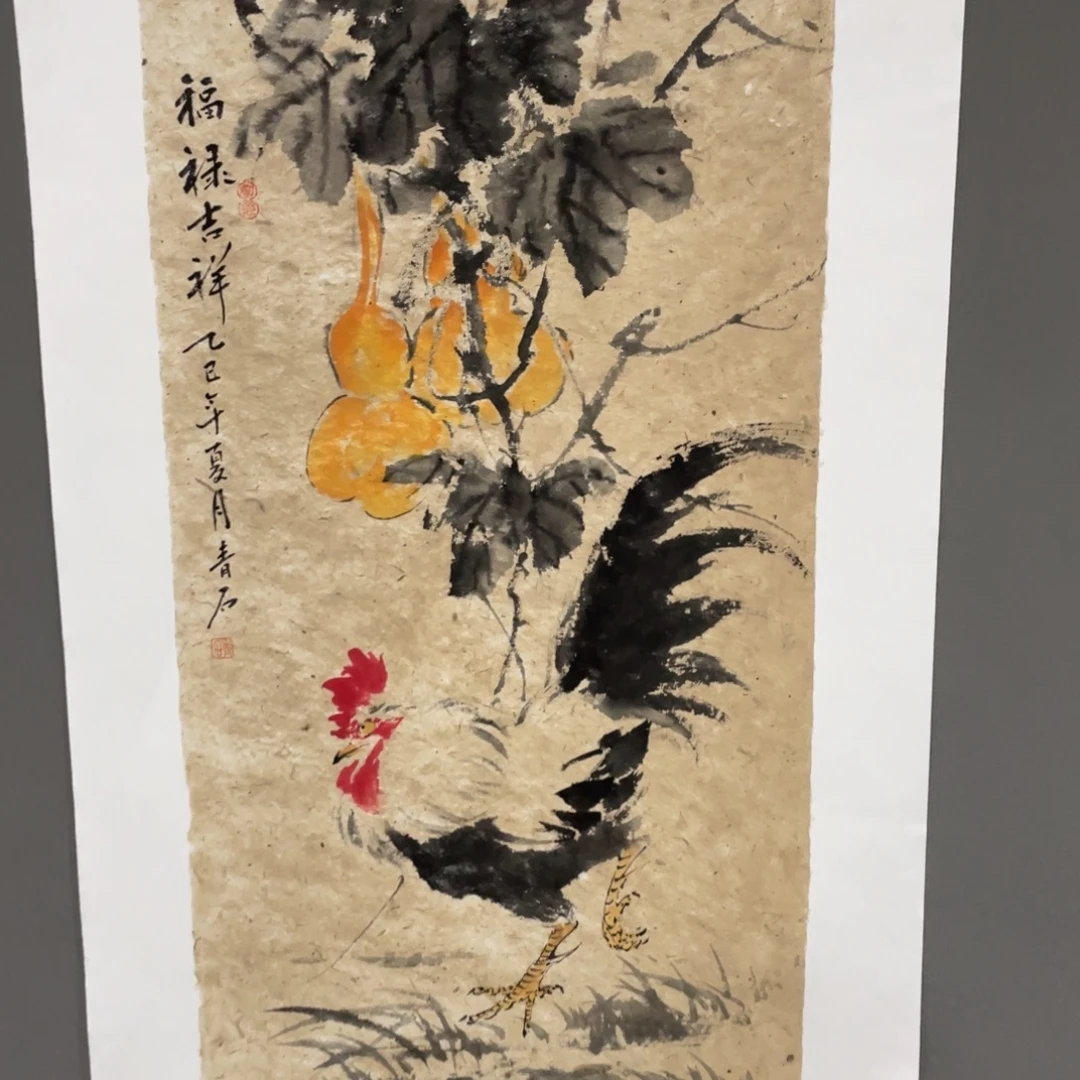 福禄吉祥乙巳年夏月青石